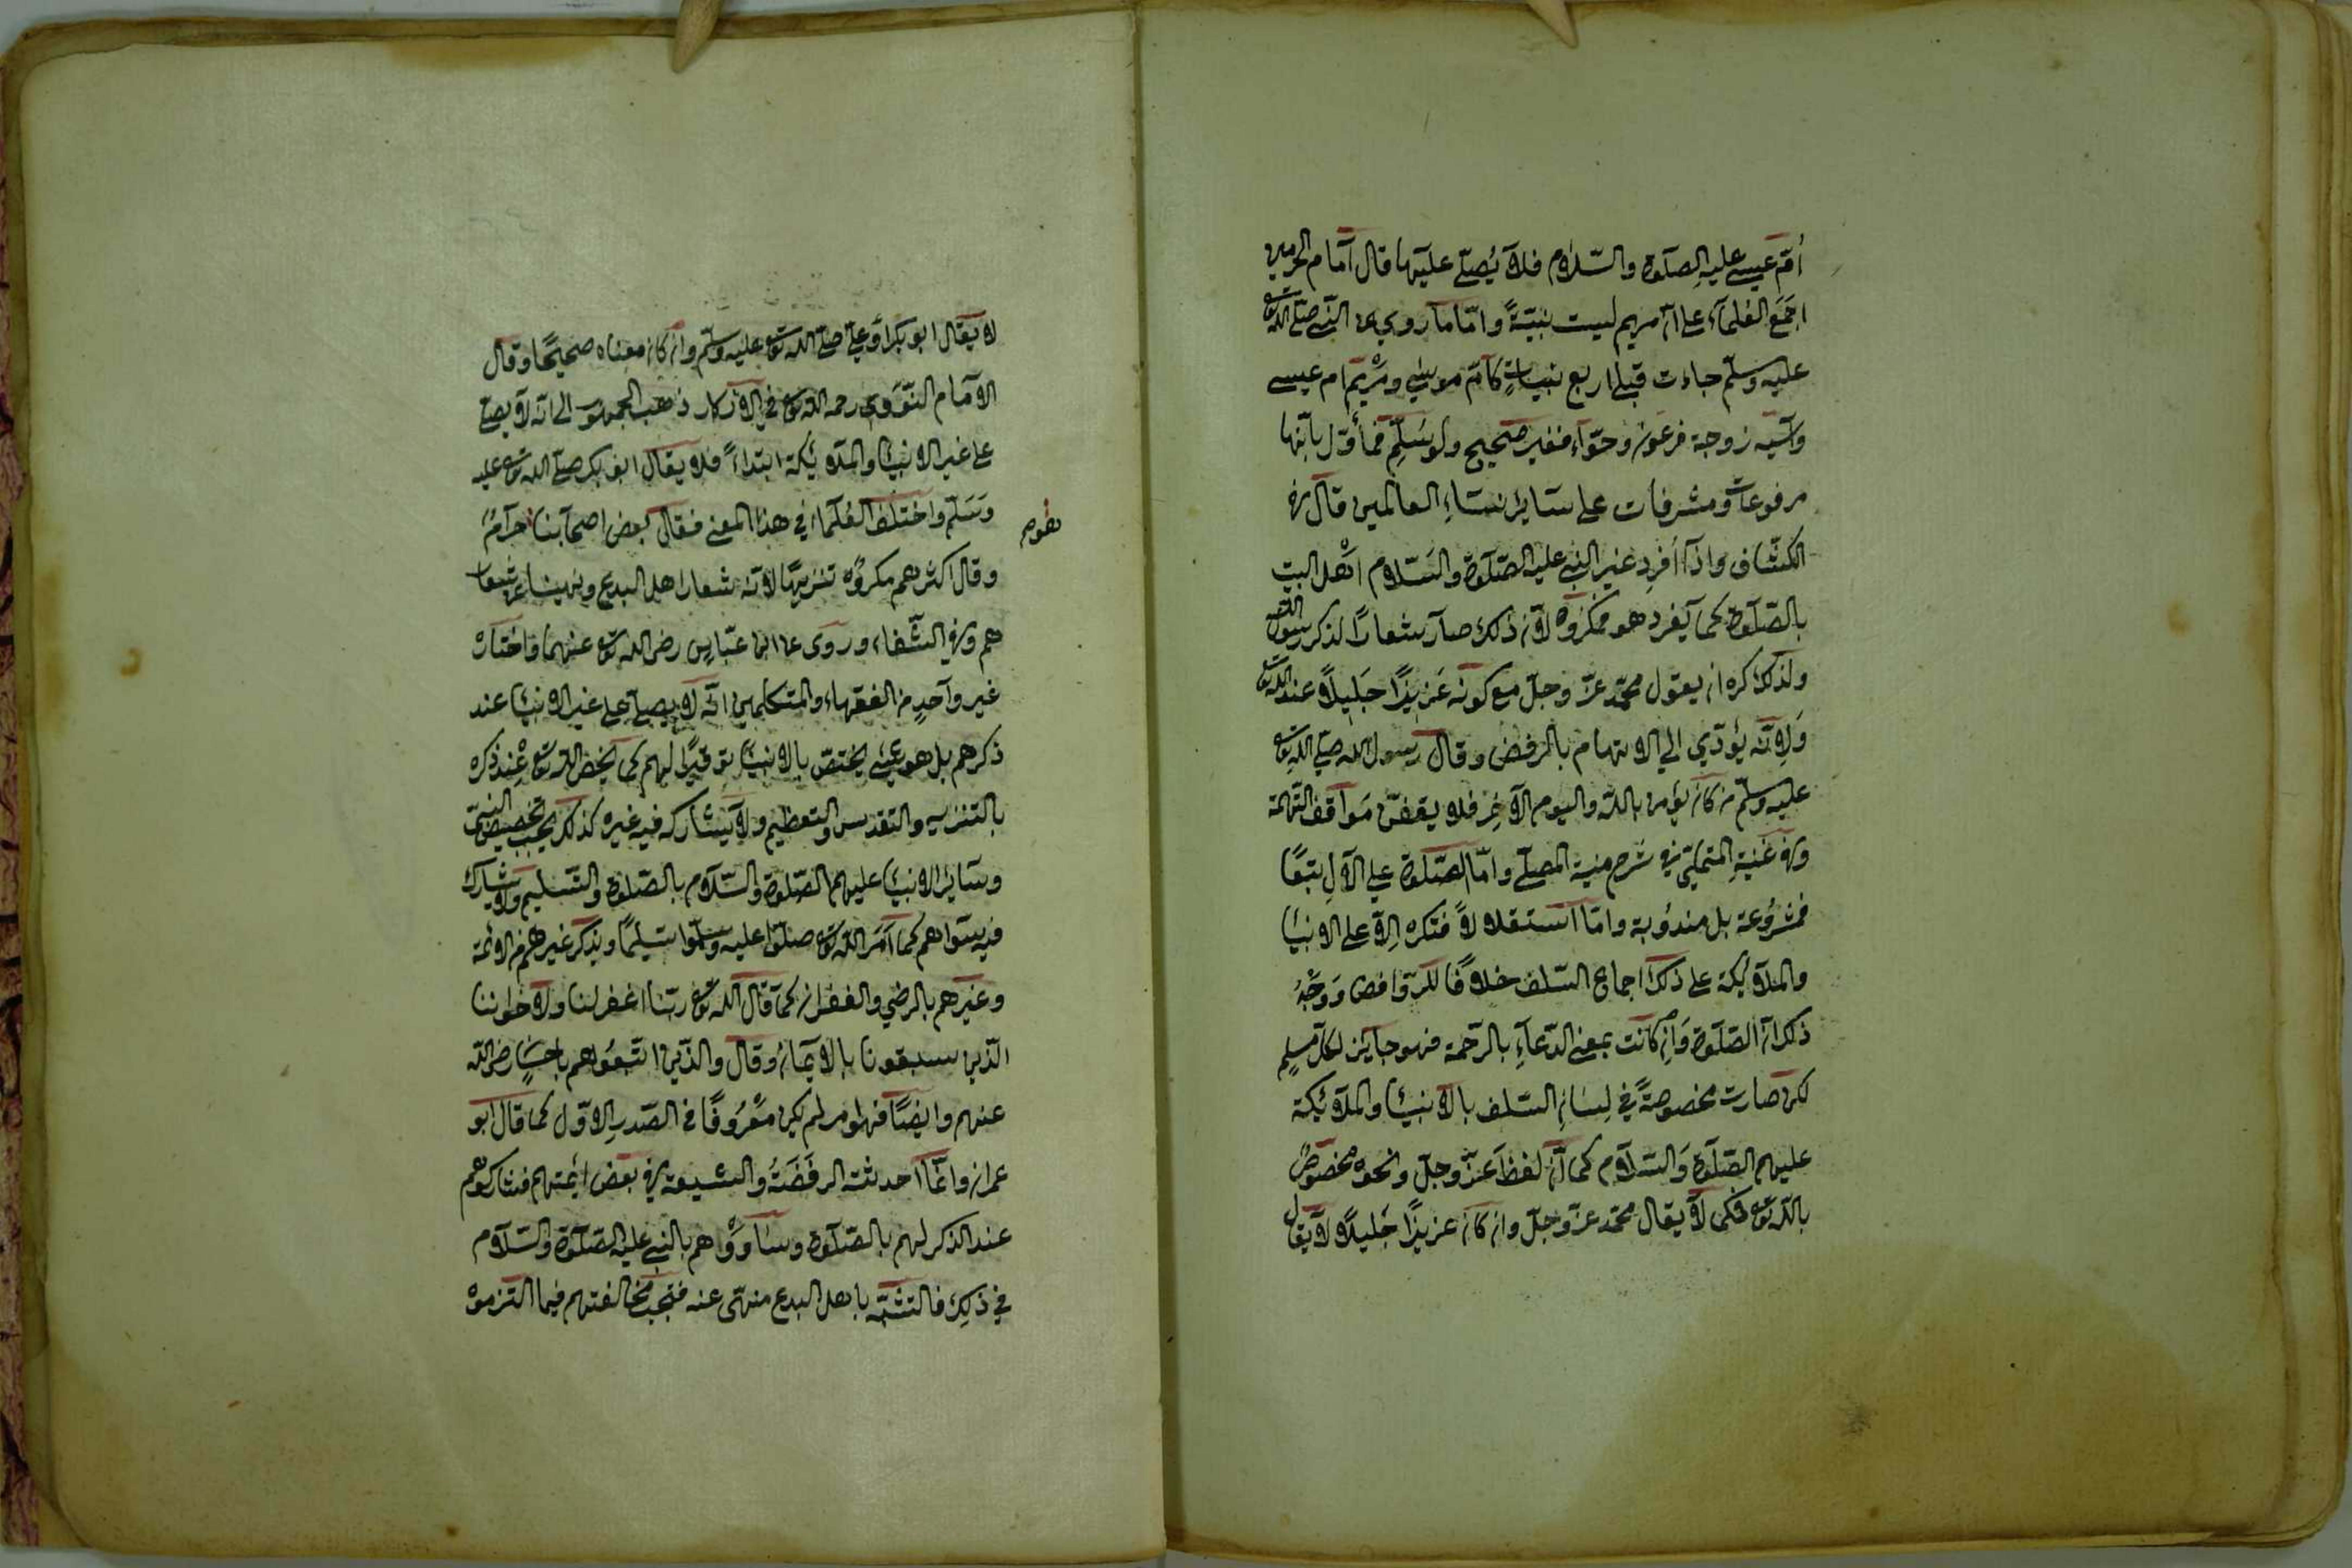 اُمّ عيسى عليه الصلوة والسّلام فلا يُصلّى عليها قال امام الحرمين
اجمَعَ العُلماء على ان مريم ليست بنبيّةً وامّا ما روي عن النبى صلى الله تع
عليه وسلّم جاءت قبلى اربع نبيات كامّ موسى ومرْيَم ام عيسى
وآسيه زوجة فرعون وحوّاء فغير صحيح ولو سُلِّم فمأوّل بانها
مرفوعات ومشرفات على سائر نساءِ العالمين قال فى
الكشّاف واذا اُفرد غير النبى عليه الصّلوة والسَّلام اهْل البيت
بالصّلوة كما يفرد هو فمكروه لان ذلك صار شعارًا لذكر رسول الله
ولذلك كره ان يقول محمّد عزّ وجلّ مع كونه عَزيزًا جَليلًا عند الله تع
وَلِانّه يُؤدّي الى الاتهام بالرفض وقال رسول الله صلى الله تع
عليه وسلّم من كان يؤمن بالله واليوم الآخِر فلا يقفنّ مَواقف التّهمة
وفى غنيةِ المتملّى فى شرح منية المصلّى وامّا الصّلوة على الآلِ تبعًا
فمشرُوعة بل مندُوبة وامّا استقلالًا فتكره اِلّا على الانبيا
والملائكة على ذلك اجماع السّلف خلافًا للرّوافض وَوَجْهُ
ذلك ان الصّلوة وَاِن كانت بمعنى الدّعآءِ بالرّحمة فهو جايز لكل مسلِمٍ
لكن صارت مخصوصةً في لِسَانِ السّلف بالانبيا والملائكة
عليهم الصّلوة وَالسّلام كما انّ لفظَ عَزّ وجلّ ونحوه مخصُوصٌ
بالله تع فكما لا يقال محمّد عزّ وجلّ وان كان عزيزًا جَليلًا لا يقال
لا يقال ابو بكر اَو علىّ صلى الله تع عليه وسلّم وان كان معناه صحيحًا وقال
الامام النّوَوى رحمه الله تع في الاذكار ذهَب الجمهور الى انّه لا يصلى
على غير الانبيا والملائكة ابتداءً فلا يقال ابو بكر صلى الله تع عليه
وَسَلّم واختلف العُلماء في هذا المعنى فقال بعض اصحابنا حرامٌ
وقال اكثرهم مكروُه تنزيهًا لانّه شعار اهل البدع ونهينا عن شعا
هم وفى الشّفاء وروى عن ابن عبّاس رضى الله تع عنهما واختاره
غير واحدٍ من الفقهاء والمتكلمين انّه لا يصلى على غير الانبيا عند
ذكرهم بل هو شئ يختصّ بالانبيا توقيرًا لهم كما يخصّ الله تع عِنْد ذكره
بالتنزيه والتقديس والتعظيم ولا يشاركه فيه غيره كذلك يجب تخصيص النّبىّ
وسائر الانبيا عليهم الصّلوة والسّلام بالصّلوة والتّسليم ولا يشارك
فيه سواهم كما اَمَرَ الله تع صلّوا عليه وسلّموا تسليمًا ويذكر غيرهم من الائمة
وغيرهم بالرضى والغفران كما قال الله تع ربّنا اغفر لنا ولاخواننا
الّذين سبقونا بالايمان وقال والّذين اتّبعُوهم باحسَانٍ رضى الله
عنهم وايضًا فهو امر لم يكن مَعْرُوفًا في الصّدرِ الاوّل كما قال ابو
عمران وانّما احدثته الرفَضَةُ والشيعة فى بعض ائمتهم فشاركوهم
عند الذكر لهم بالصّلوة وساوَوْا هم بالنبى عليه الصّلوة والسّلام
في ذلِك فالتشبّه باهل البدع منهّى عنه فتجب مخالفتهم فيما التزموه